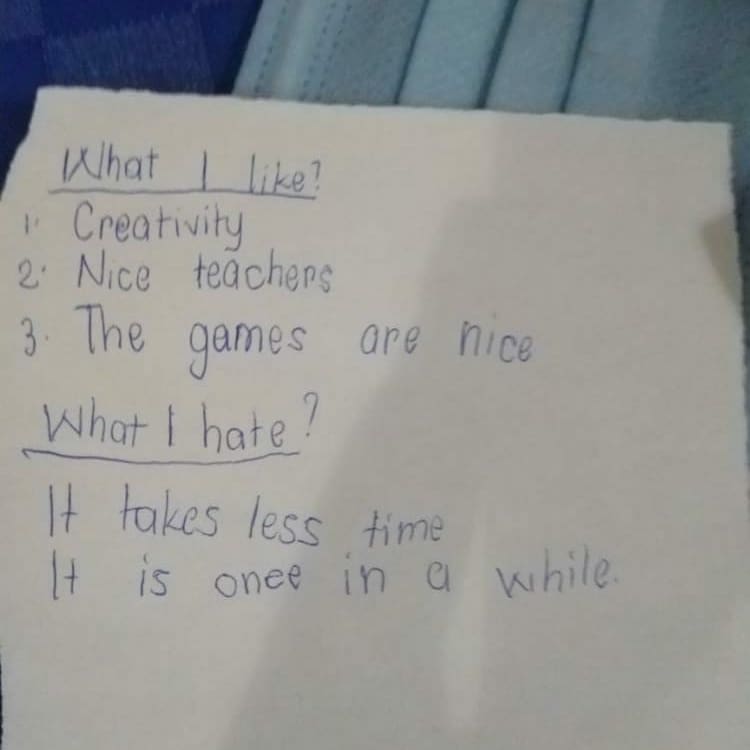 What I like?
1. Creativity
2. Nice teachers
3. The games are nice
What I hate?
It takes less time
It is once in a while.